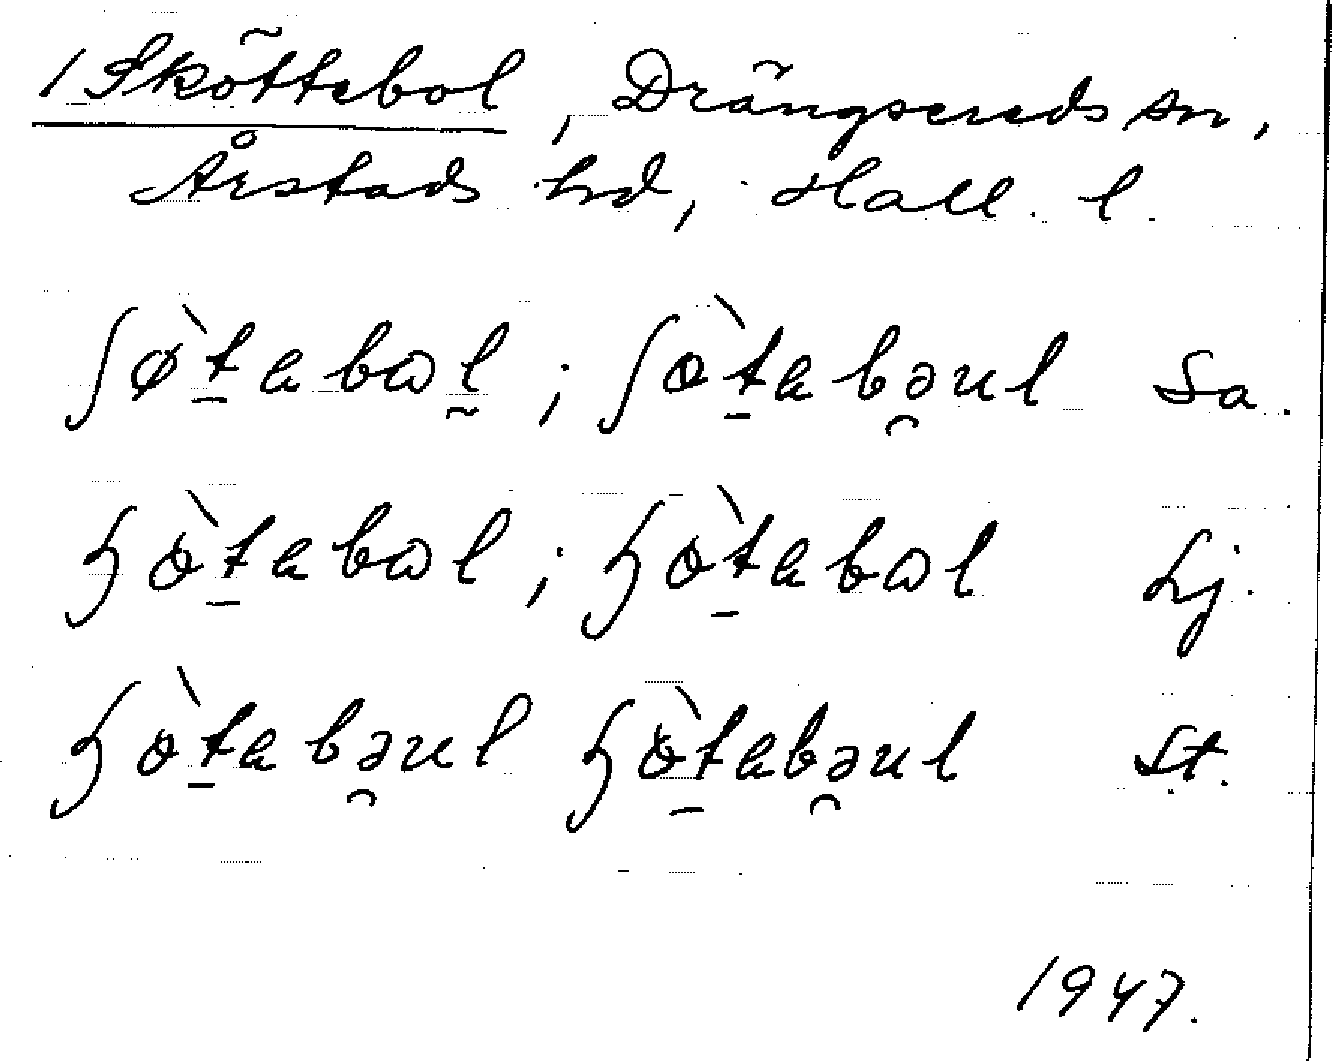 / Sköttebol, Drängsereds sn,
Årstads hd, Hall. l.
ʃø̀t̠abɷl̰ ; ʃò̀t̠abəul Sa.
ɧò̀t̠abɷl ; ɧò̀t̠abɷl Lj.
ɧò̀t̠abəul ɧò̀t̠abəul St.
1947.